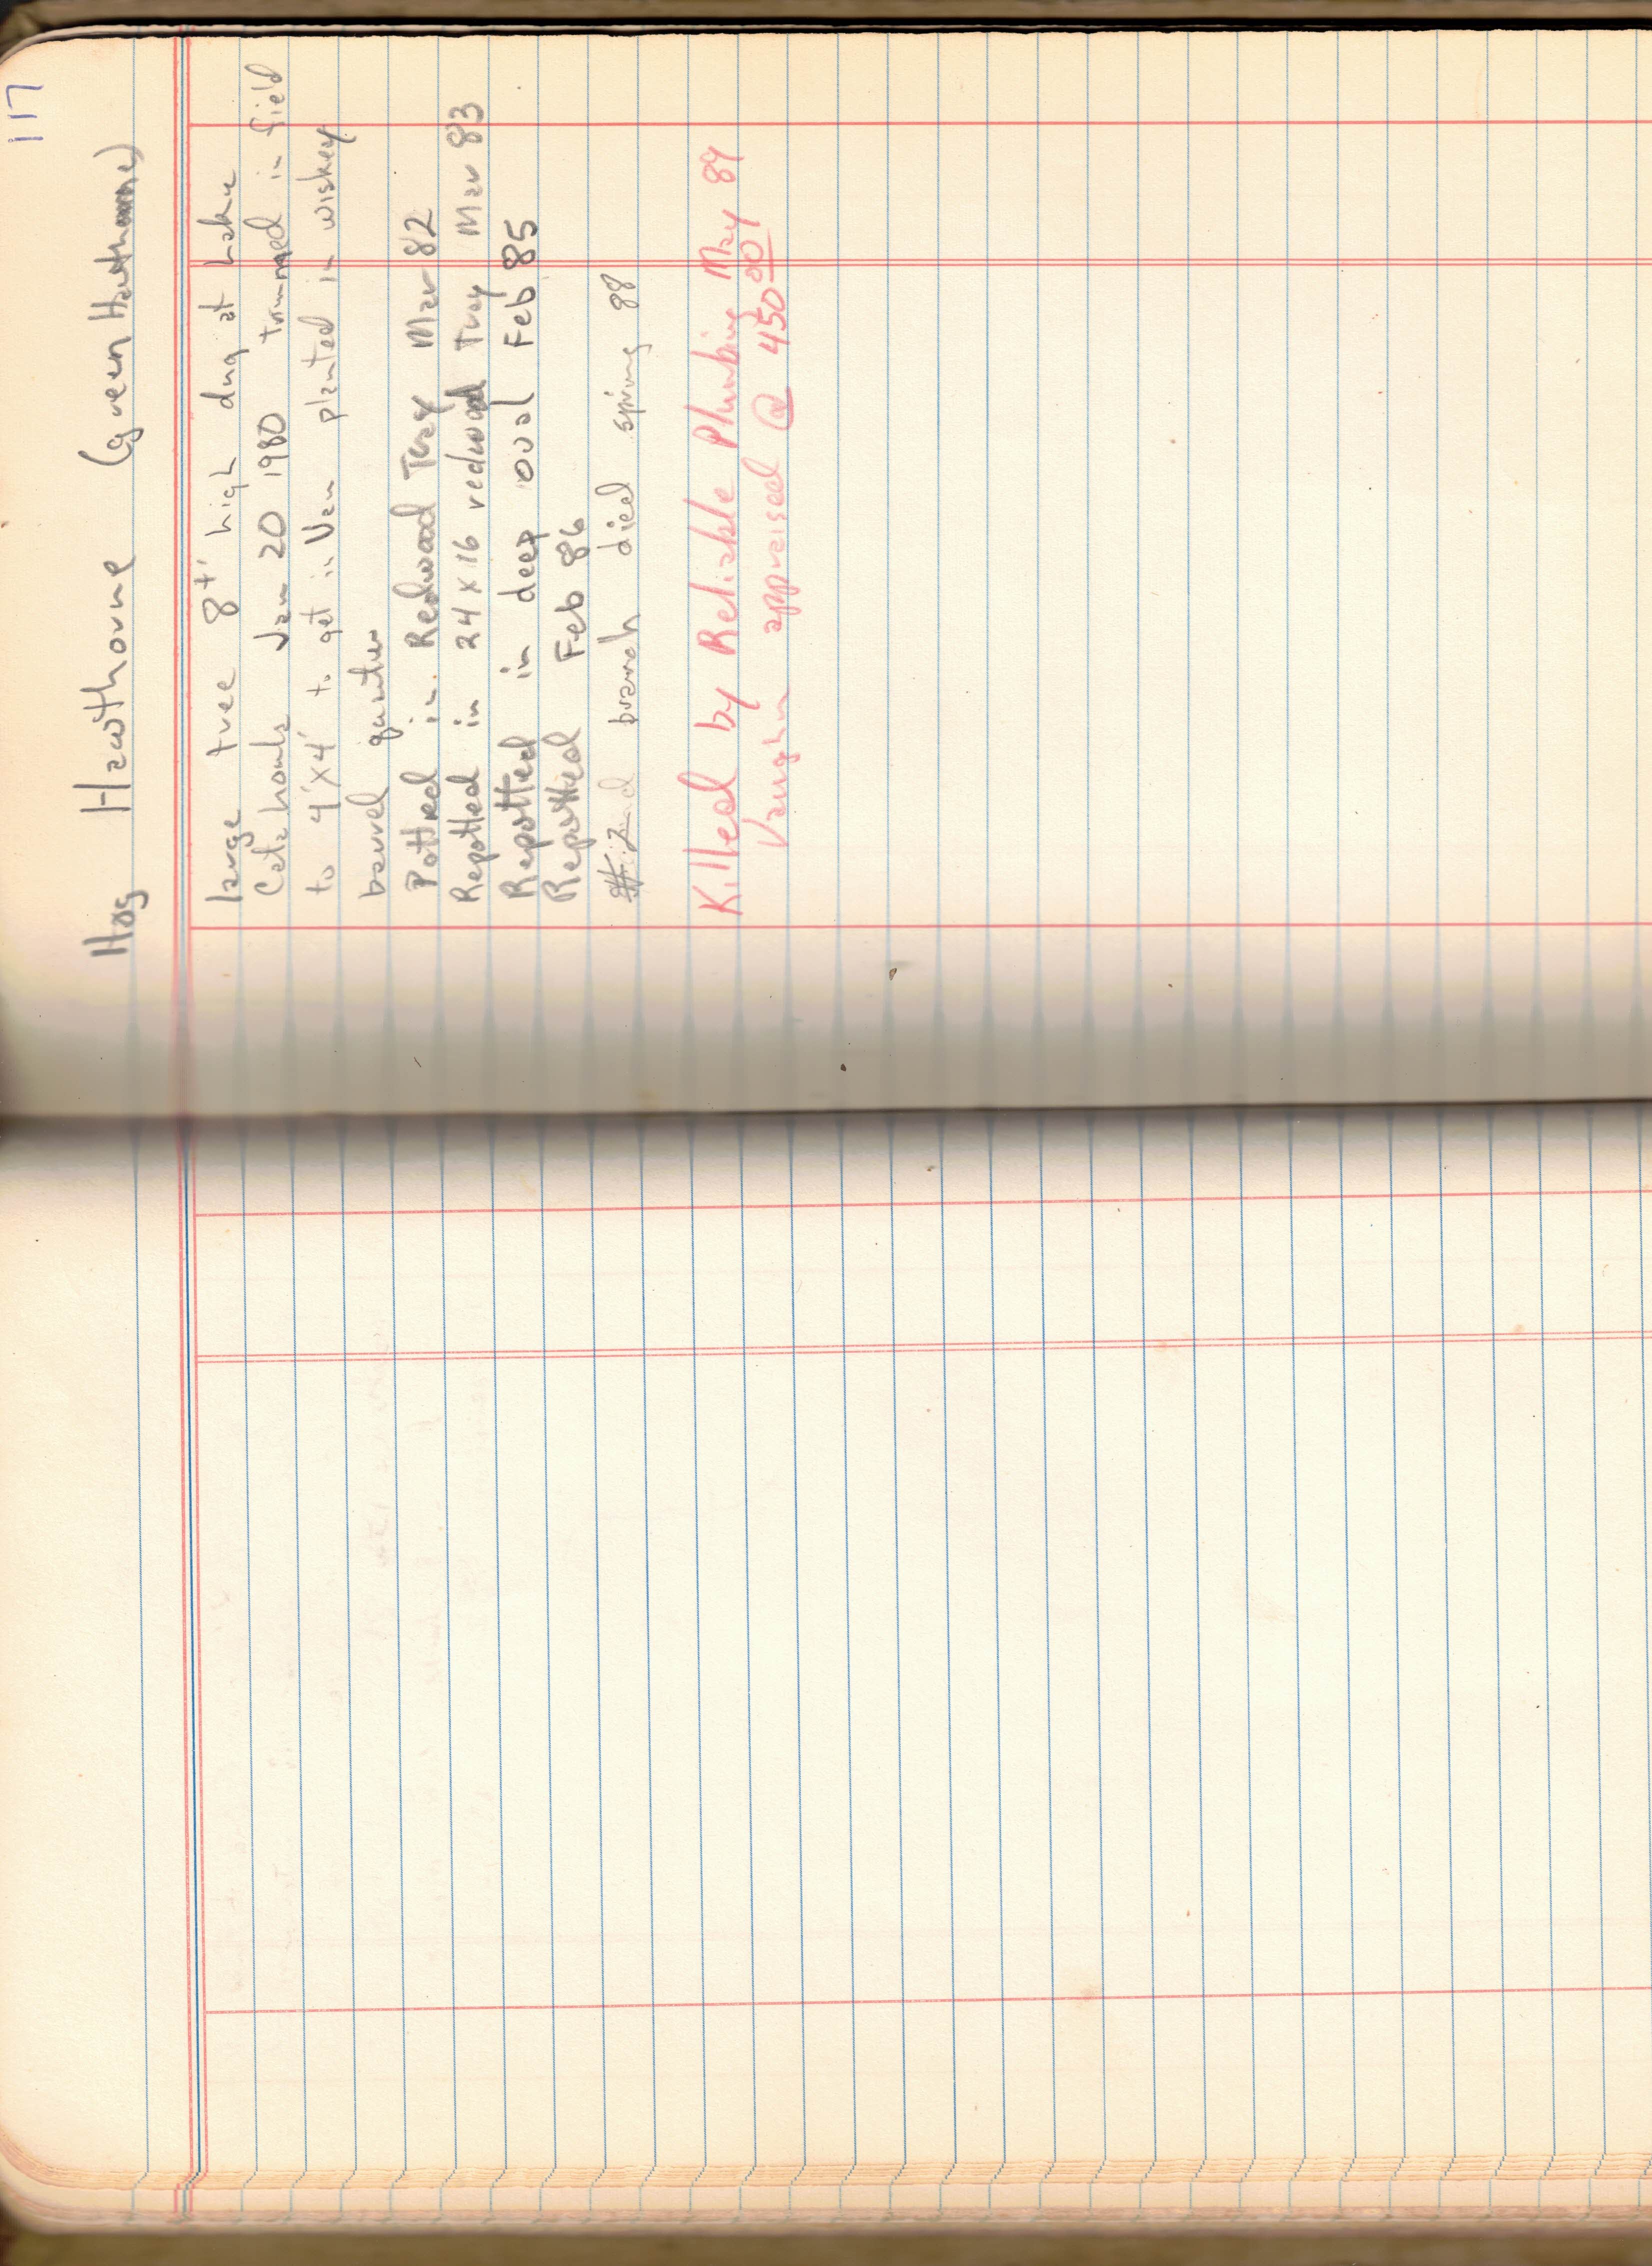 117
Hag Hawthorne (green Hawthorne)
large tree 8+' high dug at Lake
Catahoula Jan 20 1980 trimmed in field
to 4'x4' to get in Van planted in wiskey
barrel quarter
Potted in Redwood Tray Mar 82
Repotted in 24 x 16 redwood Tray Mar 83
Repotted in deep oval Feb 85
Repotted Feb 86
#2 branch died spring 88
Killed by Reliable Plumbing May 89
Vaughn appraised @ 450 00